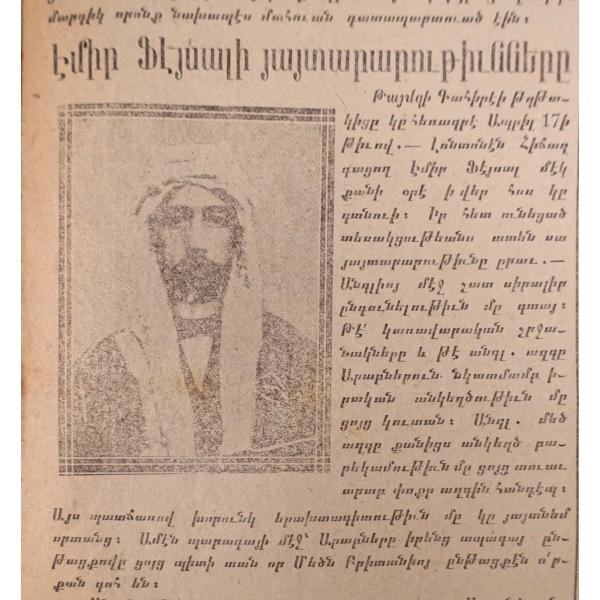 մարդիկ որոնք նախապէս մահուան դատապարտուած էին։
Էմիր Ֆէյսալի յայտարարութիւնները
Թայմզի Գահիրէի թղթա-
կիցը կը հեռագրէ Ապրիլ 17ի
թիւով.— Լոնտոնէն Հիճազ
դացող Էմիր Ֆէյսալ մէկ
քանի օրէ ի վեր հոս կը
գտնուի։ Իր հետ ունեցած
տեսակցութեանս ատեն սա
յայտարարութիւնը ըրաւ.—
Անգլիոյ մէջ շատ սիրալիր
ընդունելութիւն մը գտայ։
Թէ՛ կառավարական շրջա-
նակները և թէ անգլ. ազգը
Արաբներուն նկատմամբ ի-
րական անկեղծութիւն մը
ցոյց կուտան։ Անգլ. մեծ
ազգը քանիցս անկեղծ բա-
րեկամութիւն մը ցոյց տուաւ
արաբ փոքր ազգին հանդէպ։
Այս պատճառով խորունկ երախտագիտութիւն մը կը յայտնեմ
որտանց։ Ամէն պարագայի մէջ՝ Արաբները իրենց ապագայ ըն-
թացքովը ցոյց պիտի տան որ Մեծն Բրիտանիոյ ընթացքէն ո՛ր-
քան գոհ են։